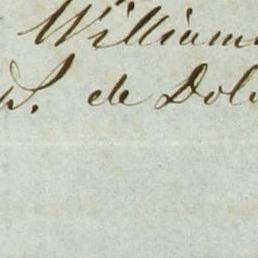 William
S. de Dol